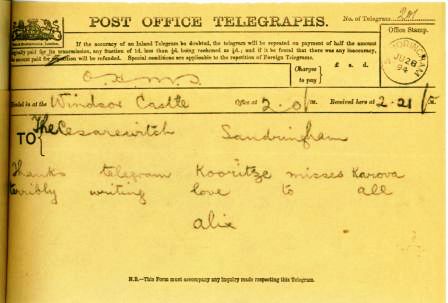 POST OFFICE TELEGRAPHS.
No. of Telegram
If the accuracy of an Inland Telegram be doubted, the telegram will be repeated on payment of half the amount
originally paid for its transmission, any fraction of 1d. less than ½d. being reckoned as ½d.; and if it be found that there was any inaccuracy,
the amount paid for repetition will be refunded. Special conditions are applicable to the repetition of Foreign Telegrams.
Office Stamp.
JU 28
94
Charges
to pay
£ s. d.
O.H.M.S.
Handed in at the Windsor Castle Office at 2.0 M. Received here at 2.21
TO The Cesarewitch Sandringham
Thanks telegram Kooritze misses Karova
terribly writing love to all
Alix
N.B.—This Form must accompany any inquiry made respecting this Telegram.